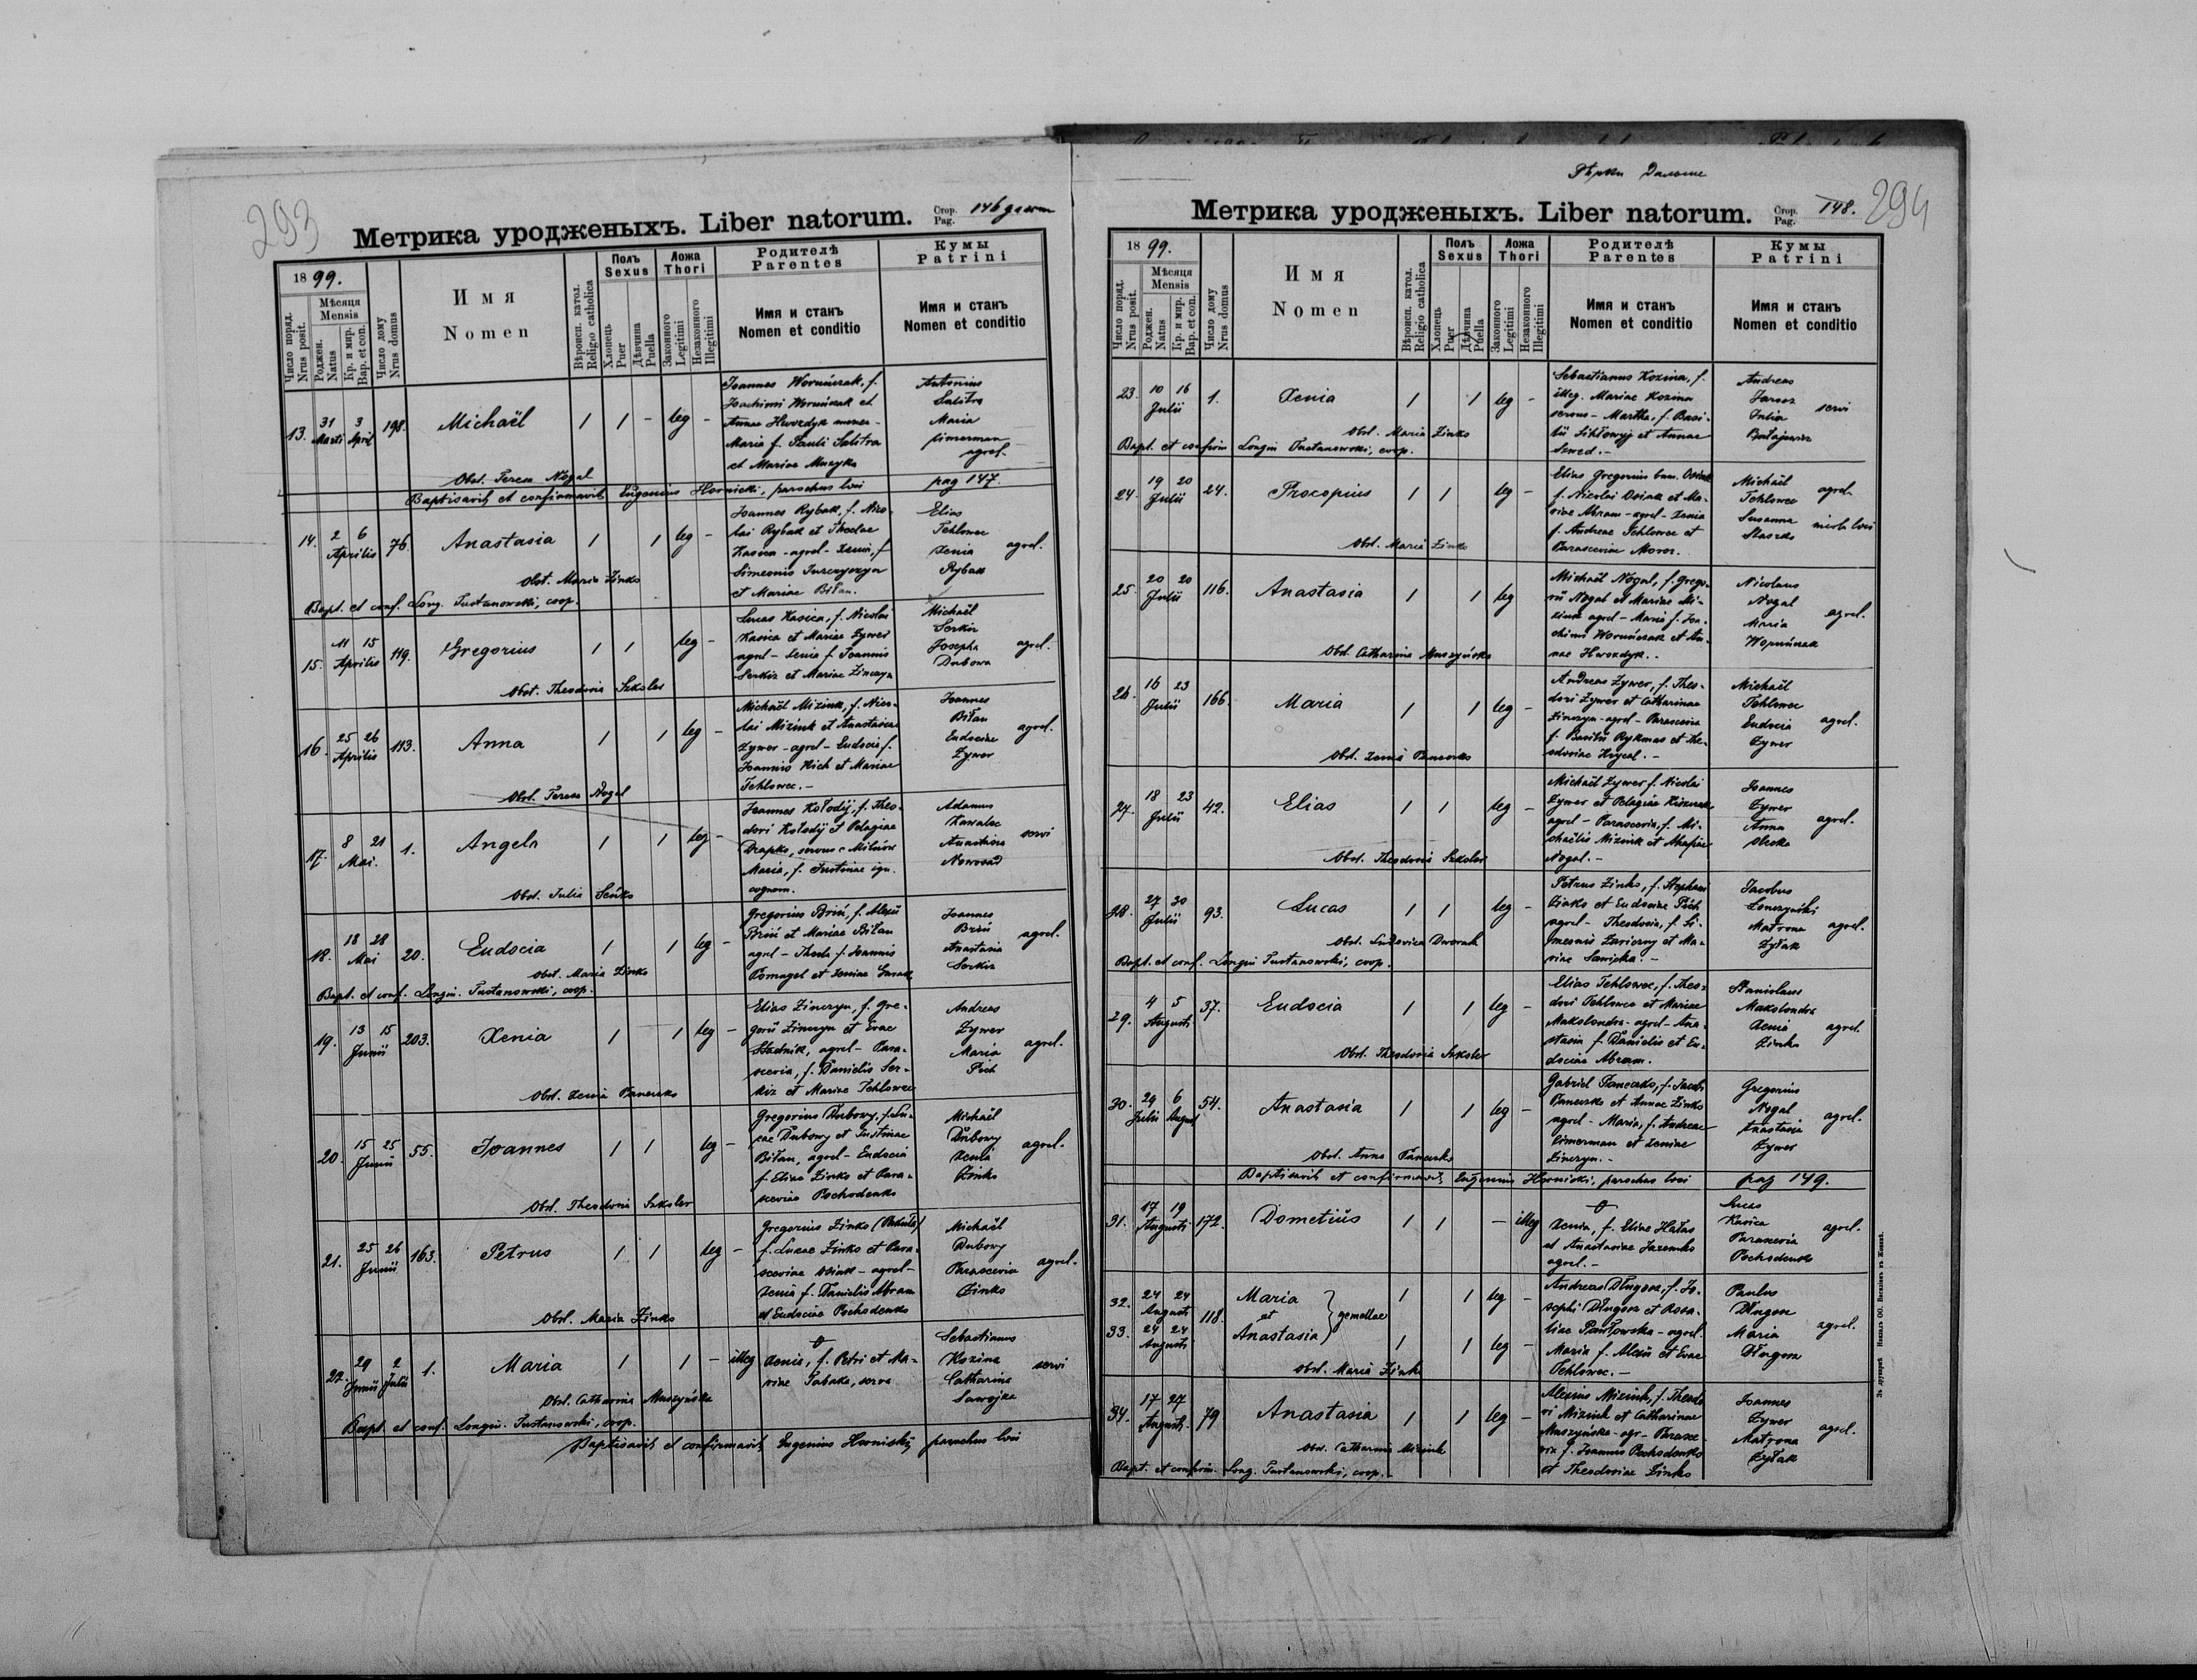 293
Метрика уродженыхъ. Liber natorum.
Стор. Pag. 146
1899.
Число поряд. Nrus posit.
Мѣсяця Mensis
Роджен. Natus
Кр. и мир. Bap. et con.
Число дому Nrus domus
Имя Nomen
Вѣроисп. катол. Religio catholica
Полъ Sexus
Хлопець Puer
Дѣвчина Puella
Ложа Thori
Законного Legitimi
Незаконного Illegitimi
Родителѣ Parentes
Имя и станъ Nomen et conditio
Кумы Patrini
Имя и станъ Nomen et conditio
13. 31 Marti 3 April 198. Michaël 1 1 - leg -
Joannes Woruńczak, f.
Joachimi Woruńczak et
Annae Hwozdyk
Maria f. Pauli Salitra
et Mariae Muzyka
Antonius
Salitra
Maria
Cimerman
agrol.
Obst. Teresa Nogal
Baptisavit et confirmavit Eugenius Hornicki, parochus loci pag 147.
14. 2 6 Aprilis 76. Anastasia 1 1 leg -
Joannes Rybak, f. Nico-
lai Rybak et Theclae
Kasica - agrol - Xenia, f.
Simeonis
et Mariae Biłan.
Elias
Tchlowec
Xenia agrol.
Rybak
Obst. Maria Zinko
Bapt. et conf. Long. Pustanowski, coop.
15. 11 15 Aprilis 119. Gregorius 1 1 leg -
Lucas Kasica, f. Nicolai
Kasica et Mariae Zywer
agrol - Xenia f. Joannis
Serkiz et Mariae Zinczyn
Michaël
Serkiz
Josepha agrol.
Dubowa
Obst. Theodosia Szkoler
16. 25 26 Aprilis 113. Anna 1 1 leg -
Michaël Mizink, f. Nico-
lai Mizink et Anastasiae
Zywer - agrol - Eudocia f.
Joannis Kich et Mariae
Tchlowec. -
Joannes
Biłan
Eudociae agrol.
Zywer
Obst. Teresa Nogal
17. 8 21 Mai. 1. Angela 1 1 leg -
Joannes Kołodij, f. Theo-
dori Kołodij et Pelagiae
Drapko, servus
Maria, f. Justinae ign.
cognom.
Adamus
Kawalec
Anastasia servi
Nowosad
Obst. Julia Seńko
18. 18 28 Mai 20. Eudocia 1 1 leg -
Gregorius Briń, f. Alexii
Briń et Mariae Biłan
agrol - Thecla f. Joannis
Pomagel et Xeniae
Joannes
Briń
Anastasia agrol.
Serkiz
Obst. Maria Zinko
Bapt. et conf. Longin. Pustanowski, coop.
19. 13 15 Junii 203. Xenia 1 1 leg -
Elias Zinczyn, f. Gre-
gorii Zinczyn et Evae
Stadnik, agrol - Para-
scevia, f. Danielis Ser-
kiz et Mariae Tchlowec
Andreas
Zywer
Maria agrol.
Pich
Obst. Xenia Paneczko
20. 15 25 Junii 55. Joannes 1 1 leg -
Gregorius Dubowy, f. Lu-
cae Dubowy et Justinae
Biłan, agrol - Eudocia
f. Eliae Zinko et Para-
sceviae Pochodenko
Michaël
Dubowy
Xenia agrol.
Zinko
Obst. Theodosia Szkoler
21. 25 26 Junii 163. Petrus 1 1 leg -
Gregorius Zinko
f. Lucae Zinko et Para-
sceviae Osiak - agrol -
Xenia f. Danielis Abram
et Eudociae Pochodenko
Michaël
Dubowy
Parascevia agrol.
Zinko
Obst. Maria Zinko
22. 29 Junii 2 Julii 1. Maria 1 1 - illeg
Xenia, f. Petri et Ma-
riae Tabaka, serva
Sebastianus
Kozina servi
Catharina
Obst. Catharina Muszyńska
Bapt. et conf. Longin. Pustanowski, coop.
Baptisavit et confirmavit Eugenius Hornickij parochus loci
294
Метрика уродженыхъ. Liber natorum.
Стор. Pag. 148.
1899.
Число поряд. Nrus posit.
Мѣсяця Mensis
Роджен. Natus
Кр. и мир. Bap. et con.
Число дому Nrus domus
Имя Nomen
Вѣроисп. катол. Religio catholica
Полъ Sexus
Хлопець Puer
Дѣвчина Puella
Ложа Thori
Законного Legitimi
Незаконного Illegitimi
Родителѣ Parentes
Имя и станъ Nomen et conditio
Кумы Patrini
Имя и станъ Nomen et conditio
23. 10 16 Julii 1. Xenia 1 1 leg -
Sebastianus Kozina, f.
illeg. Mariae Kozina
servus - Martha, f. Basi-
lii et Annae
Szwed. -
Andreas
Jarosz
Julia servi
Obst. Maria Zinko
Bapt. et confirm Longin Pustanowski, coop.
24. 19 20 Julii 24. Procopius 1 1 leg -
Elias Gregorius Osiak
f. Nicolai Osiak et Ma-
riae Abram - agrol - Xenia
f. Andreae Tchlowec et
Parasceviae Moroz.
Michaël
Tchlowec agrol.
Susanna
Staszko
Obst. Maria Zinko
25. 20 20 Julii 116. Anastasia 1 1 leg
Michaël Nogal, f. Grego-
rii Nogal et Mariae Mi-
zink agrol - Maria f. Joa-
chimi Woruńczak et An-
nae Hwozdyk. -
Nicolaus
Nogal
Maria agrol.
Woruńczak
Obst. Catharina Muszyńska
26. 16 23 Julii 166. Maria 1 1 leg -
Andreas Zywer, f. Theo-
dori Zywer et Catharinae
Zinczyn - agrol - Parascevia
f. Basilii Rykmas et The-
odosiae Hrycal. -
Michaël
Tchlowec
Eudocia agrol.
Zywer
Obst. Xenia Paneczko
27. 18 23 Julii 42. Elias 1 1 leg -
Michaël Zywer f. Nicolai
Zywer et Pelagiae
agrol - Parascevia, f. Mi-
chaëlis Mizink et Ahafiae
Nogal. -
Joannes
Zywer
Anna agrol.
Obst. Theodosia Szkoler
28. 27 30 Julii 93. Lucas 1 1 leg -
Petrus Zinko, f. Stephani
Zinko et Eudociae Pich
agrol - Theodosia, f. Si-
meonis Zariczny et Ma-
riae
Jacobus
Matrona agrol.
Zyłak
Obst. Ludovica Dwornik
Bapt. et conf. Longin Pustanowski, coop.
29. 4 5 Augusti 37. Eudocia 1 1 leg -
Elias Tchlowec, f. Theo-
dori Tchlowec et Mariae
Makolondra - agrol - Ana-
stasia f. Danielis et Eu-
dociae Abram.
Stanislaus
Makolondra
Xenia agrol.
Zinko
Obst. Theodosia Szkoler
30. 29 Julii 6 August 54. Anastasia 1 1 leg -
Gabriel Paneczko, f. Jacobi
Paneczko et Annae Zinko
agrol - Maria, f. Andreae
Cimerman et Xeniae
Zinczyn. -
Gregorius
Nogal
Anastasia agrol.
Zywer
Obst. Anna Paneczko
Baptisavit et confirmavit Eugenius Hornicki, parochus loci pag 149.
31. 17 19 Augusti 172. Dometiûs 1 1 - illeg
Xenia, f. Eliae Hałas
et Anastasiae Jaremko
agrol. -
Lucas
Kasica
Parascevia agrol.
Pochodenko
32. 24 24 Augusti 118. Maria 1 1 leg -
et gemellae
33. 24 24 Augusti Anastasia 1 1 leg -
Andreas Długosz, f. Jo-
sephi Długosz et Rosa-
liae Pawłowska - agrol.
Maria f. Alexii et Evae
Tchlowec. -
Paulus
Długosz
Maria agrol.
Długosz
Obst. Maria Zinko
34. 17 27 Augusti 79 Anastasia 1 1 leg -
Alexius Mizink, f. Theodo-
ri Mizink et Catharinae
Muszyńska - agr - Parasce-
via f. Joannis Pochodenko
et Theodosiae Zinko
Joannes
Zywer
Matrona agrol.
Zyłak
Obst. Catharina Mizink
Bapt. et confirm. Long. Pustanowski, coop. -
Зъ друкарнѣ Накладъ ОО. Василіянъ въ Жовквѣ.